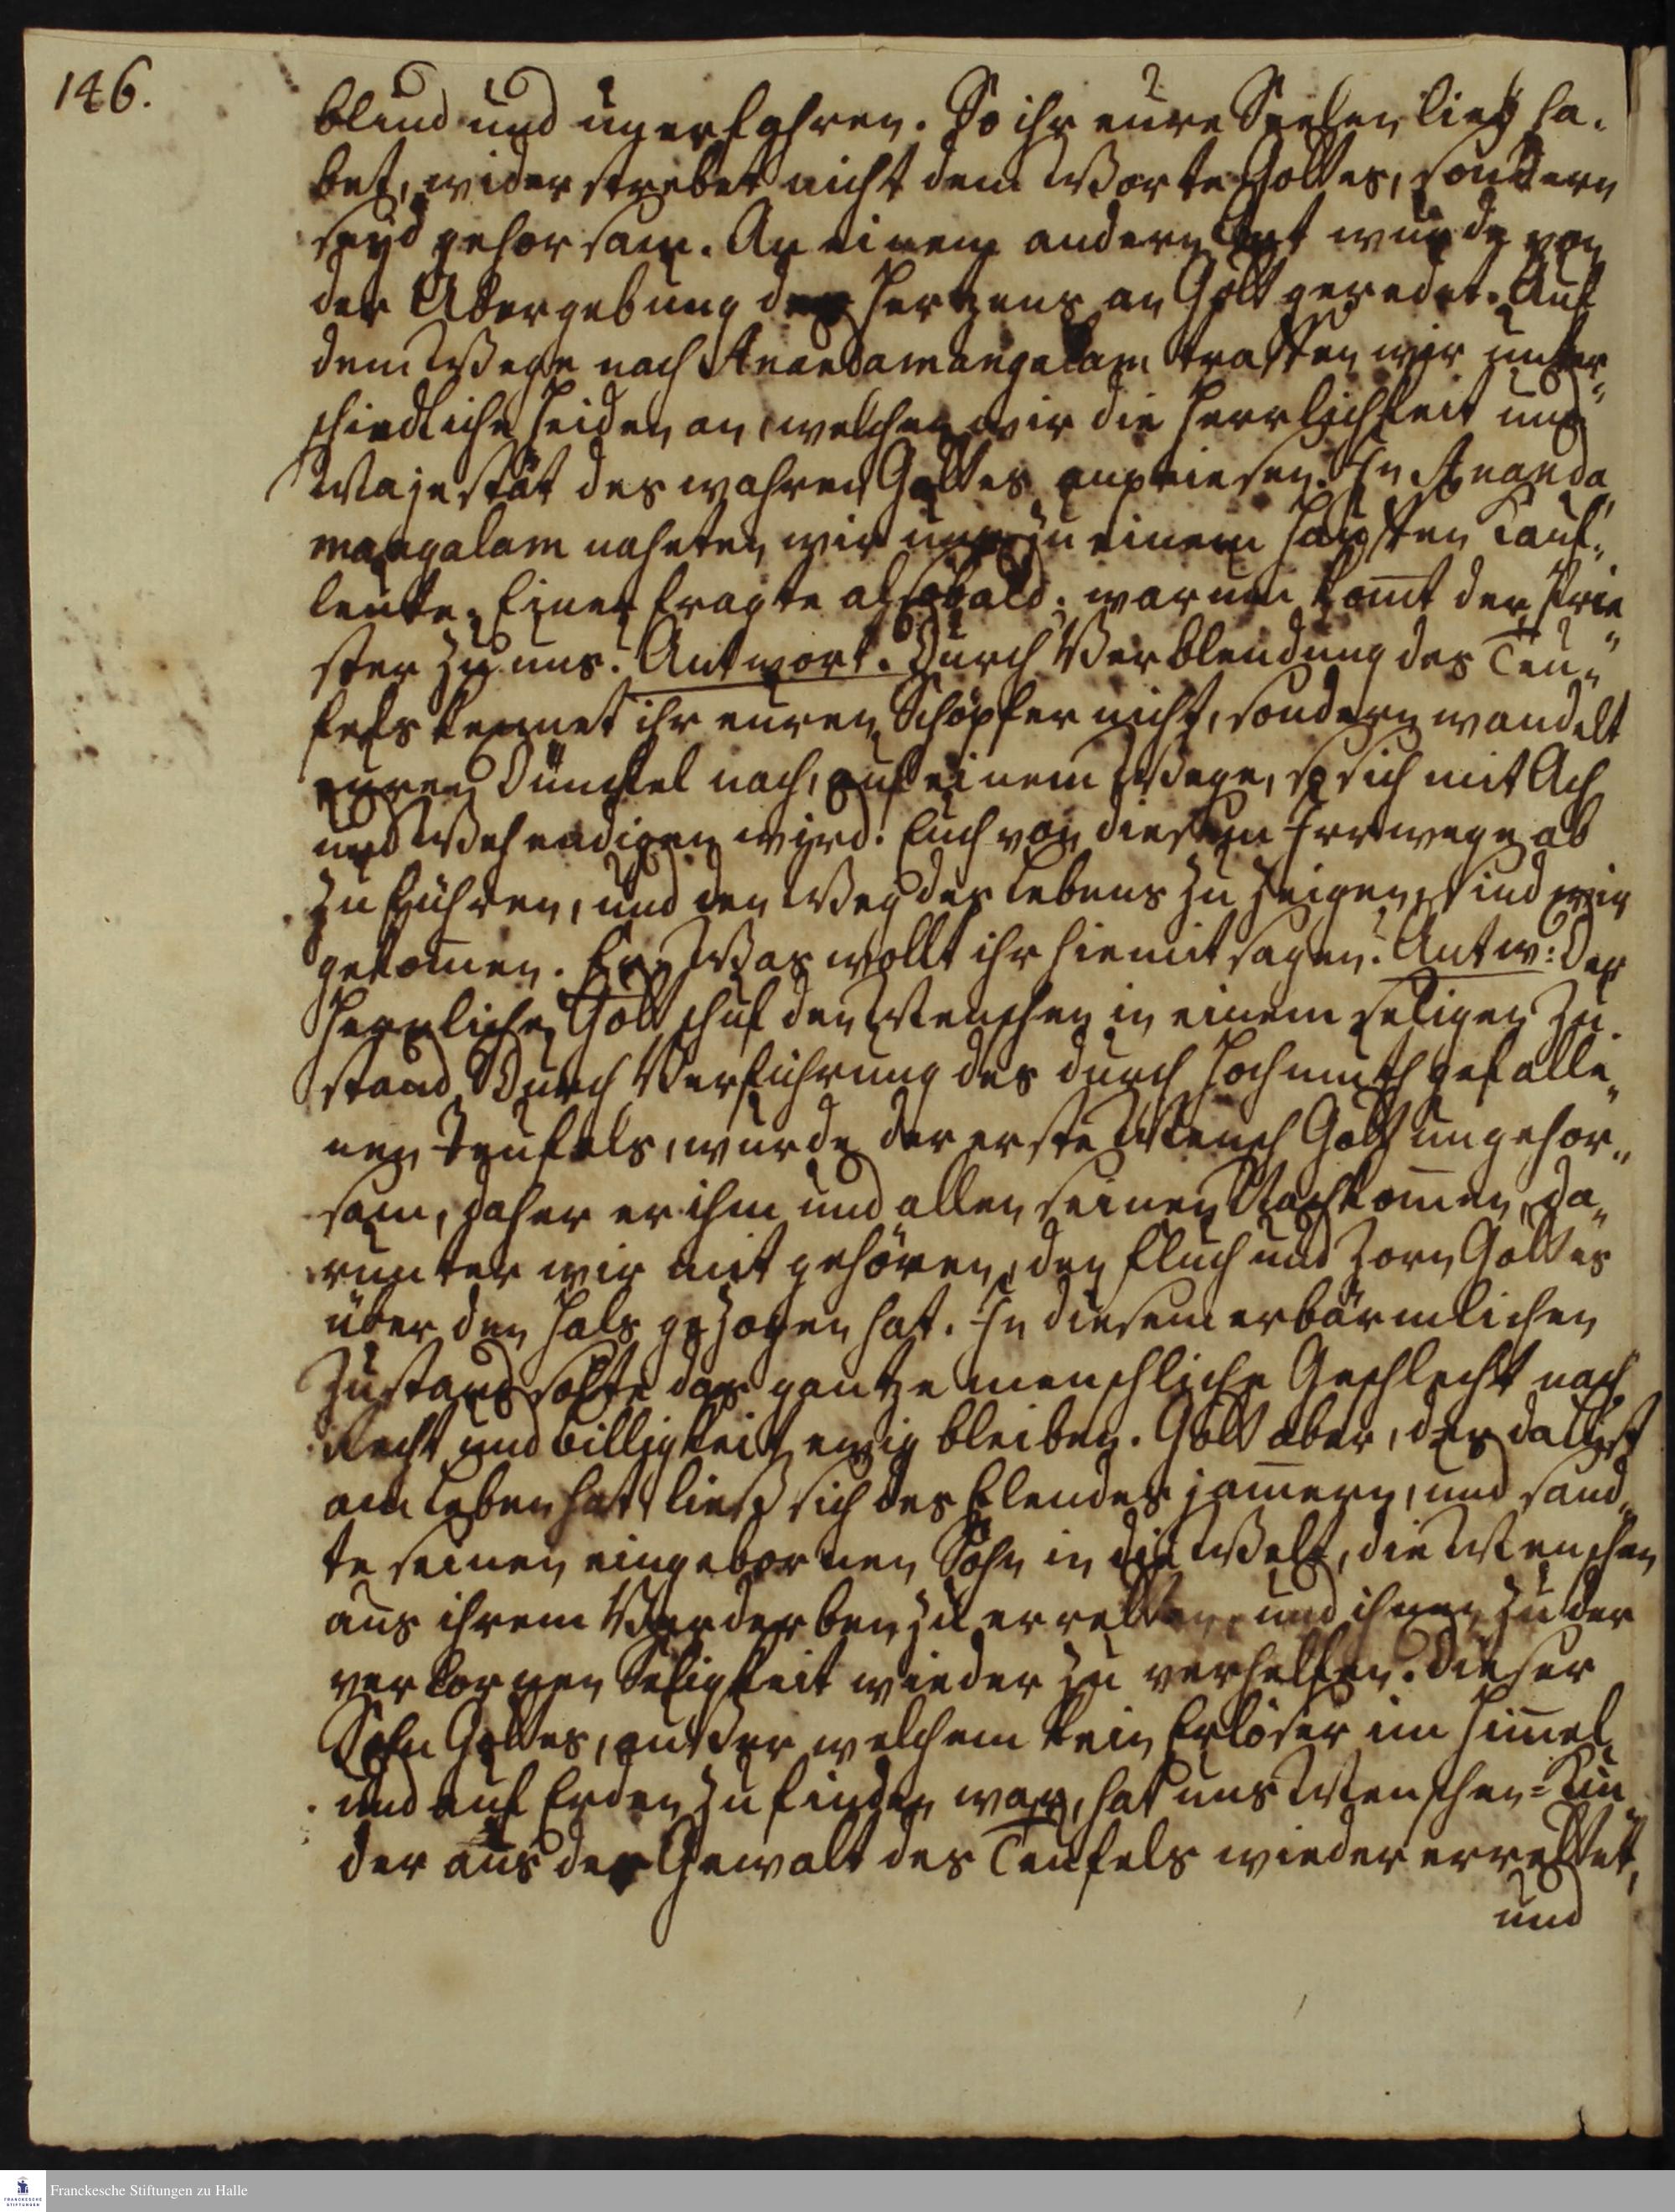 146.
blind und unerfahren. So ihr eure Seelen lieb ha-
bet, widerstrebet nicht dem Worte Gottes, sondern
seyd gehorsam. An einem andern Ort wurde von
der Übergebung des Hertzens an Gott geredet. Auf
dem Wege nach Anandamangalam traffen wir unter-
schiedliche Heiden an, welchen wir die Herrlichkeit und
Majestät des wahren Gottes anpriesen. In Ananda
mangalam naheten wir uns zu einem Hauffen Kauf-
leute. Einer fragte alsobald: warum komt der Prie
ster zu uns? Antwort. Durch Verblendung des Teu-
fels kennet ihr euren Schöpfer nicht, sondern wandelt
euren Dünckel nach, auf einem Wege, so sich mit Ach
und Weh endigen wird. Euch von diesem Irrwege ab
zu führen, und den Weg des Lebens zu zeigen, sind wir
gekom̄en. Er. Was wollt ihr hiemit sagen? Antw: Der
Herrliche Gott schuf den Menschen in einem seligen Zu-
stand. Durch Verführung des durch Hochmuth gefalle-
nen Teufels, wurde der erste Mensch Gott ungehor-
sam, daher er ihm und allen seinen Nachkom̄en, da-
runter wir mit gehören, den Fluch und Zorn Gottes
über den Hals gezogen hat. In diesem erbärmlichen
Zustand solte das gantze menschliche Geschlecht nach
Recht und Billigkeit ewig bleiben. Gott aber, der da Lust
am Leben hat, ließ sich des Elendes jam̄ern, und sand-
te seinen eingebornen Sohn in die Welt, die Menschen
aus ihrem Verderben zu erretten, und ihnen zu der
verlornen Seligkeit wieder zu verhelfen. Dieser
Sohn Gottes, ausser welchem kein Erlöser im Him̄el
und auf Erden zu finden war, hat uns Menschen-Kin
der aus der Gewalt des Teufels wieder errettet,
und
Franckesche Stiftungen zu Halle